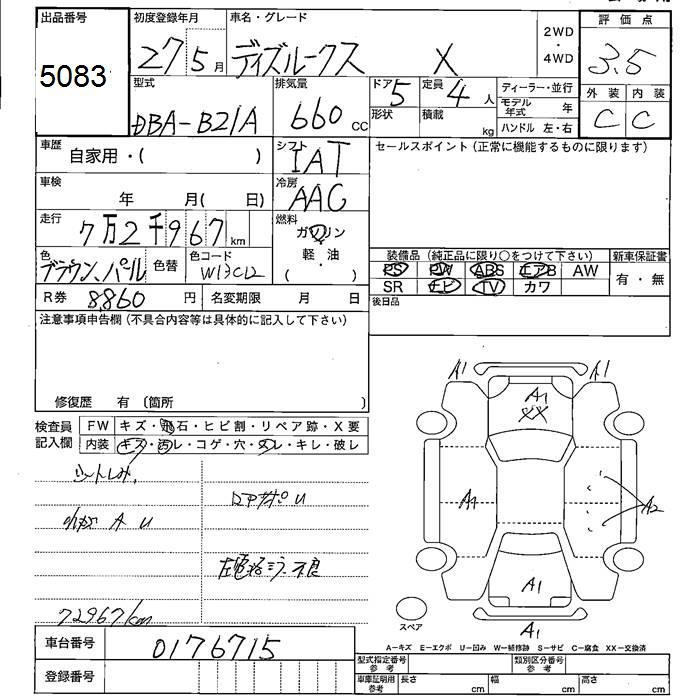 出品番号
5083
初度登録年月
27 5月
車名・グレード
ディズルークス X
2WD
・
4WD
評価点
3.5
外装 内装
C C
型式
DBA-B21A
排気量
660 CC
ドア 5
形状
定員 4 人
積載 kg
ディーラー・並行
モデル年式 年
ハンドル 左・右
車歴
自家用・( )
シフト
IAT
セールスポイント(正常に機能するものに限ります)
車検
年 月( 日)
冷房
AAC
走行
7万2千967km
燃料
ガソリン
軽・油
( )
色
ブラウン、パール
色替
色コード
装備品(純正品に限り○をつけて下さい)
新車保証書
PS PW ABS エアB AW
有・無
SR ナビ TV カワ
R券 8,860 円
名変期限 月 日
後日品
注意事項申告欄(不具合内容等は具体的に記入して下さい)
修復歴 有 (箇所 )
検査員
記入欄
FW キズ・飛石・ヒビ割・リペア跡・X要
内装 キズ・汚レ・コゲ・穴・スレ・キレ・破レ
シートしみ
A U
72967km
A1 A1
A1
XX
A1
A2
A1
A1
スペア
A-キズ E-エクボ U-凹み W-補修跡 S-サビ C-腐食 XX-交換済
車台番号
0176715
登録番号
型式指定番号
参考
類別区分番号
参考
車庫証明用
参考
長さ cm
幅 cm
高さ cm